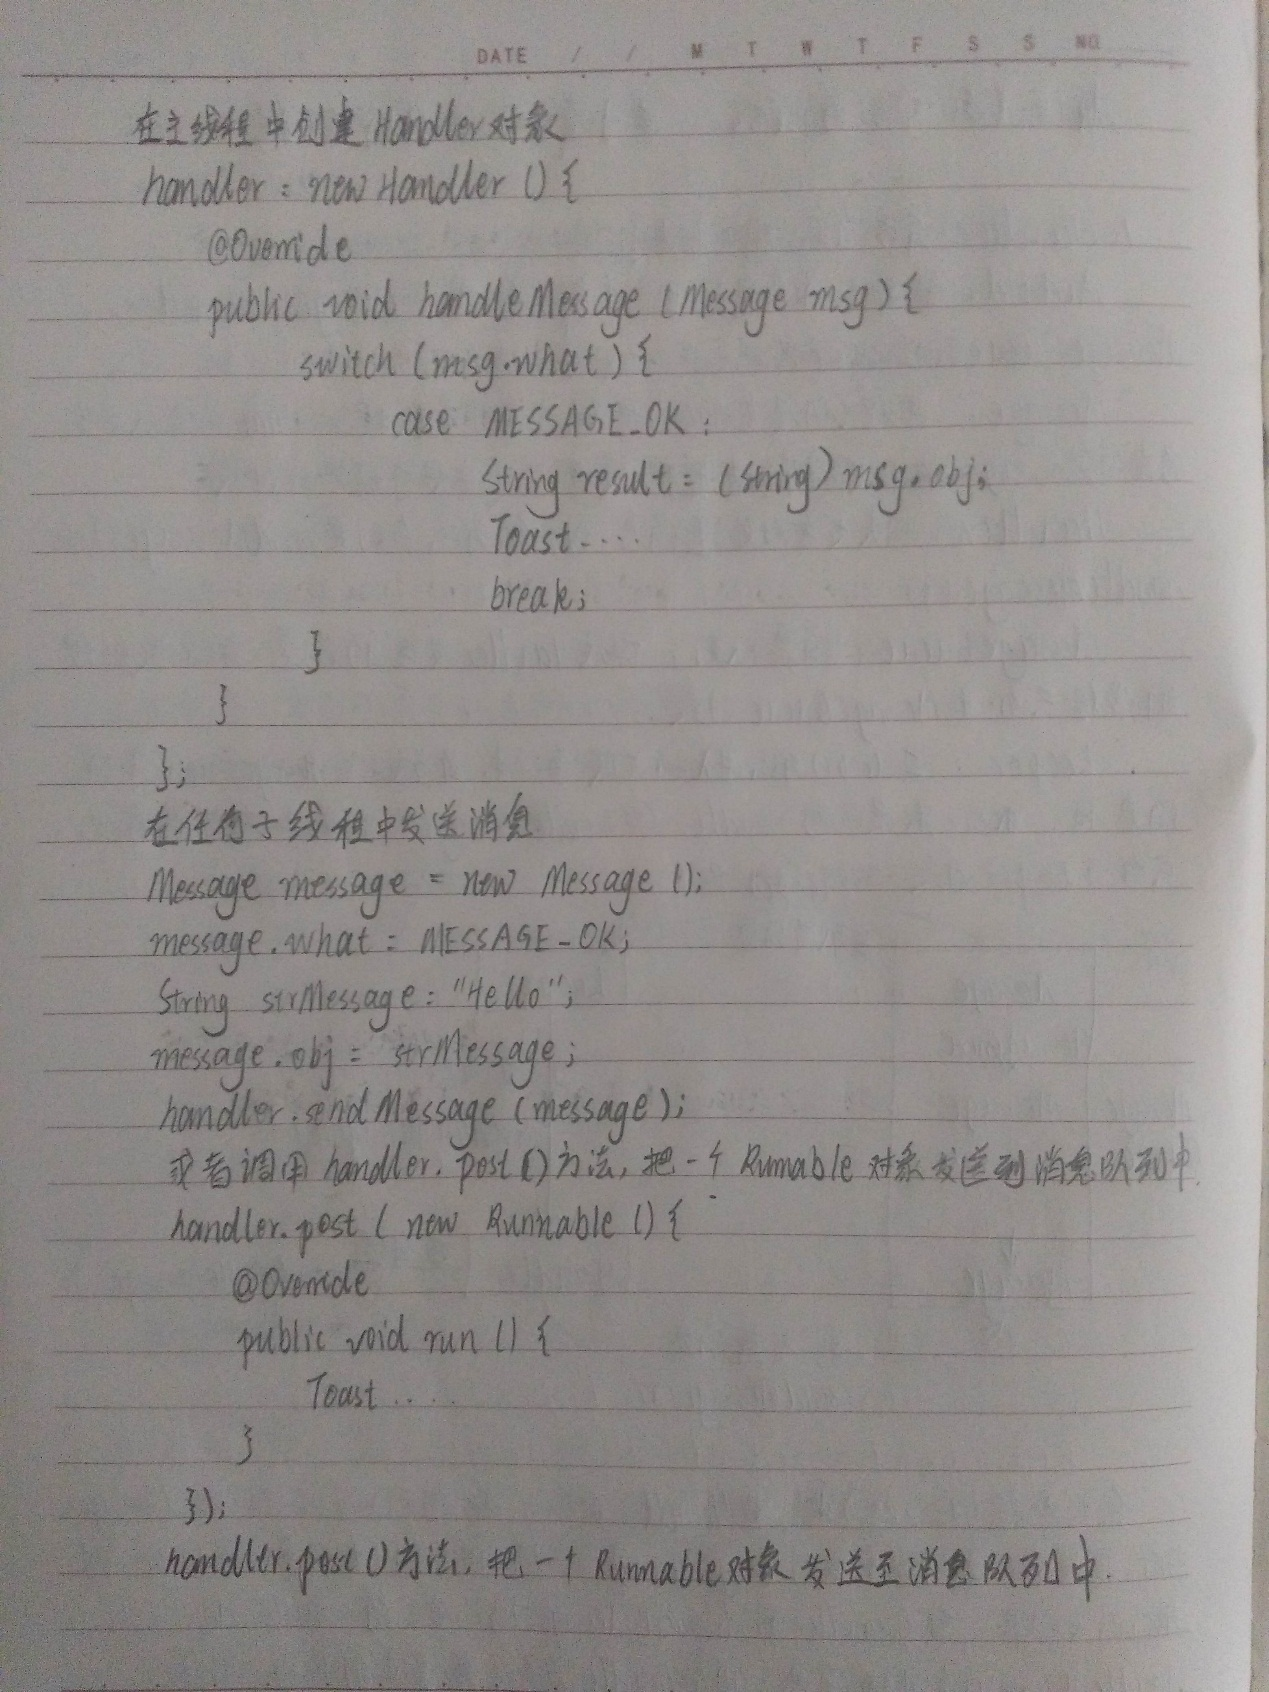 DATE / / M T W T F S S NO.
在主线程中创建Handler对象
handler = new Handler () {
@Override
public void handleMessage (Message msg) {
switch (msg.what) {
case MESSAGE_OK :
String result = (String) msg.obj;
Toast....
break;
}
}
};
在任何子线程中发送消息
Message message = new Message ();
message.what = MESSAGE_OK;
String strMessage = "Hello";
message.obj = strMessage;
handler.sendMessage (message);
或者调用handler.post()方法,把一个Runnable对象发送到消息队列中.
handler.post ( new Runnable () {
@Override
public void run () {
Toast ....
}
});
handler.post()方法,把一个Runnable对象发送至消息队列中.